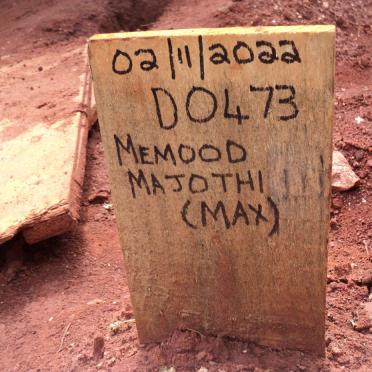 02/11/2022
D0473
MEMOOD
MAJOTHI
(MAX)